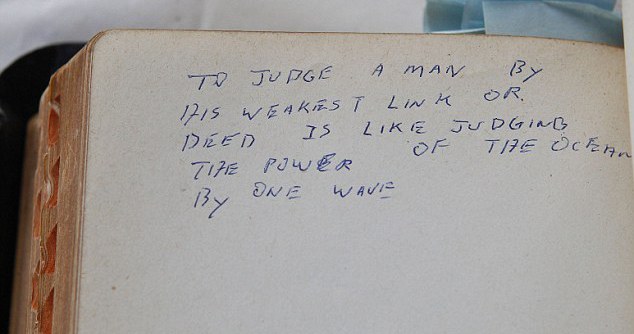 TO JUDGE A MAN BY
HIS WEAKEST LINK OR
DEED IS LIKE JUDGING
THE POWER OF THE OCEAN
BY ONE WAVE